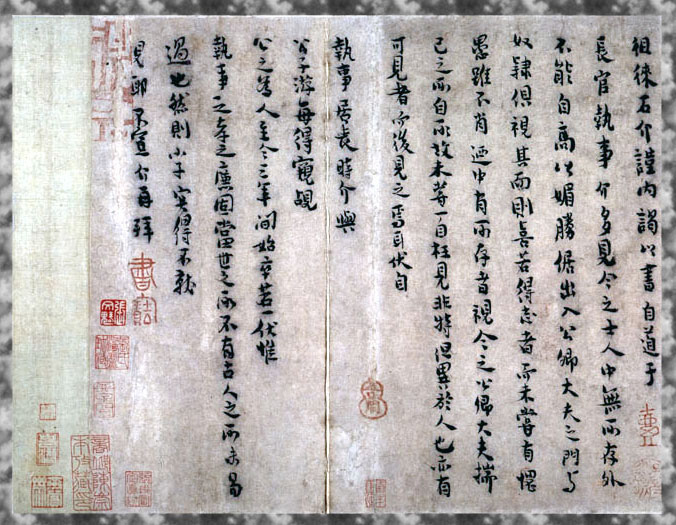 徂徠石介謹內謁以書自道于
長官執事介多見今之士人中無所存外
不能自高以媚勝倨出入公卿大夫之門與
奴隸俱視其面則喜若得志者而未嘗有愧
愚雖不肖廼中有所存者視今之公卿大夫揣
己之所自所故未嘗一自枉見非特但異於人也亦有
可見者而後見之焉耳伏自
執事居喪時介與
公子游每得竊覘
公之為人至今三年間始卒若一伏惟
執事之孝之廉固當世之所不有古人之所未易
過也然則小子實得不就
見耶不宣介再拜